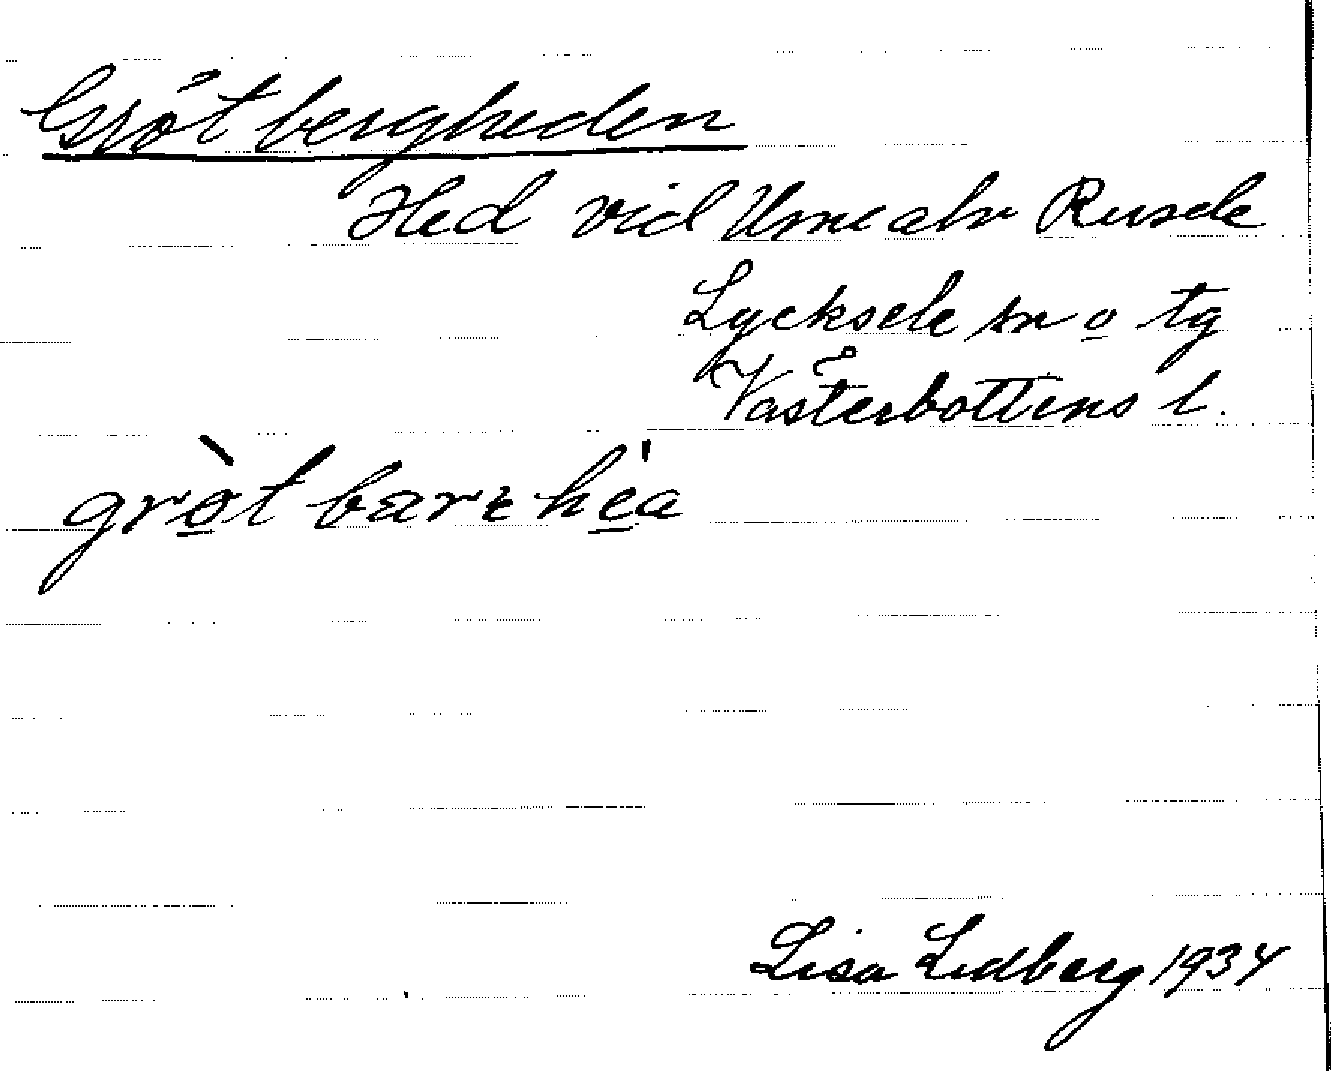 Grötbergheden
Hed vid Umeälv Rusele
Lycksele sn o tg
Västerbottens l.
Lisa Lidberg 1934